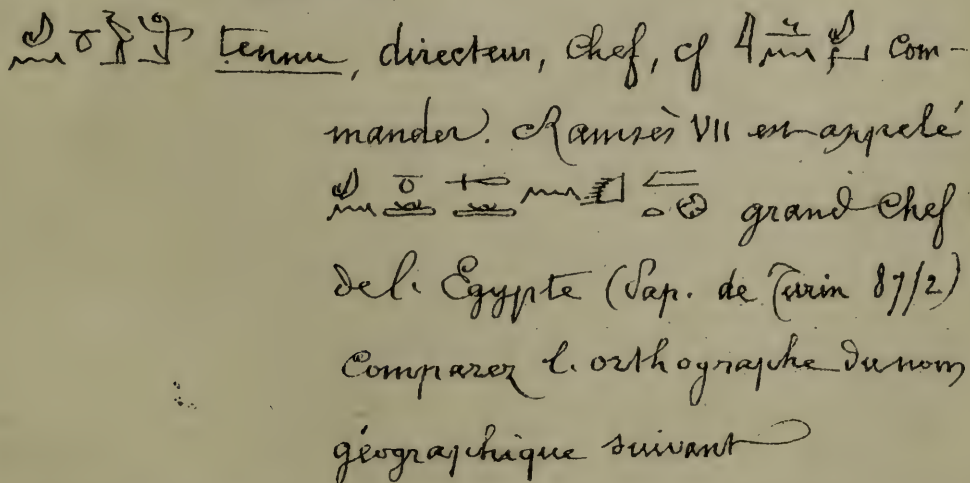 tennu, directeur, chef, cf com-
mander. Ramsès VII est appelé
grand chef
de l. Égypte (Pap. de Turin 87/2)
Comparez l. orthographe du nom
géographique suivant